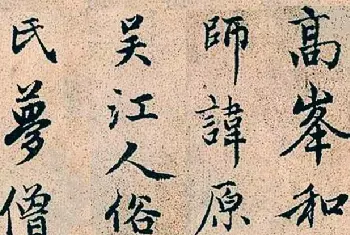 高峯和
師諱原
吴江人俗
氏夢僧